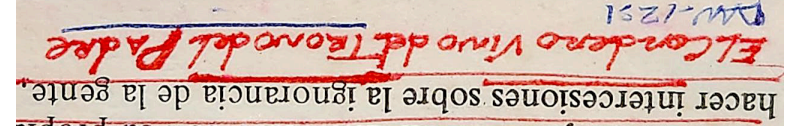 hacer intercesiones sobre la ignorancia de la gente,
El Cordero Vino del Trono del Padre